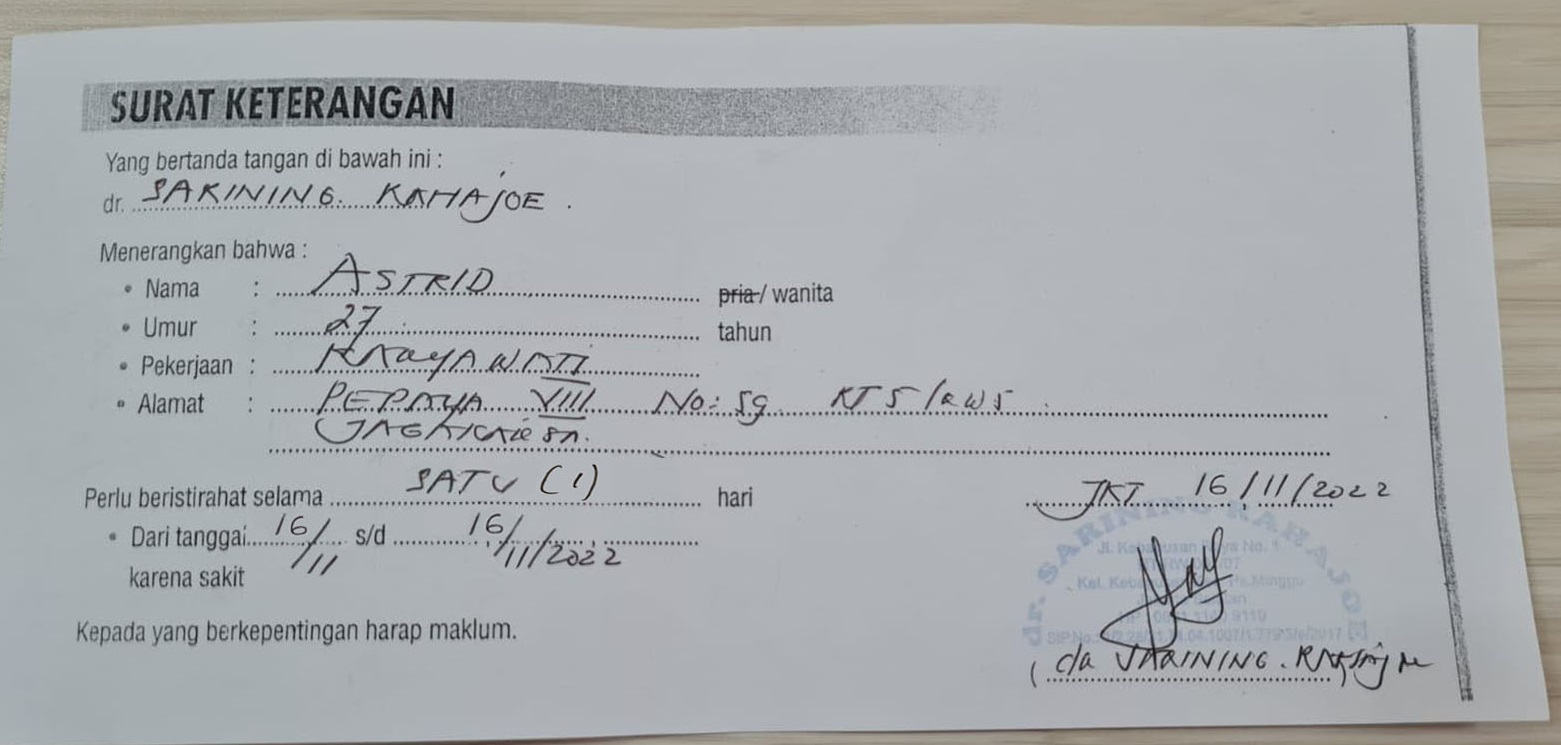 SURAT KETERANGAN
Yang bertanda tangan di bawah ini :
dr. SARINING. RAHAJOE.
Menerangkan bahwa :
• Nama : ASTRID pria / wanita
• Umur : 27 tahun
• Pekerjaan : KARYAWATI
• Alamat : PEPAYA VIII No: 59 RT 5/RW 5
JAGAKARSA.
Perlu beristirahat selama SATU (1) hari
JKT 16/11/2022
• Dari tanggal 16/11 s/d 16/11/2022
karena sakit
Kepada yang berkepentingan harap maklum.
dr. SARINING RAHAJOE
Kel.
Ps.Minggu
9110
SIP.No.
(dr SARINING. RAHAJOE